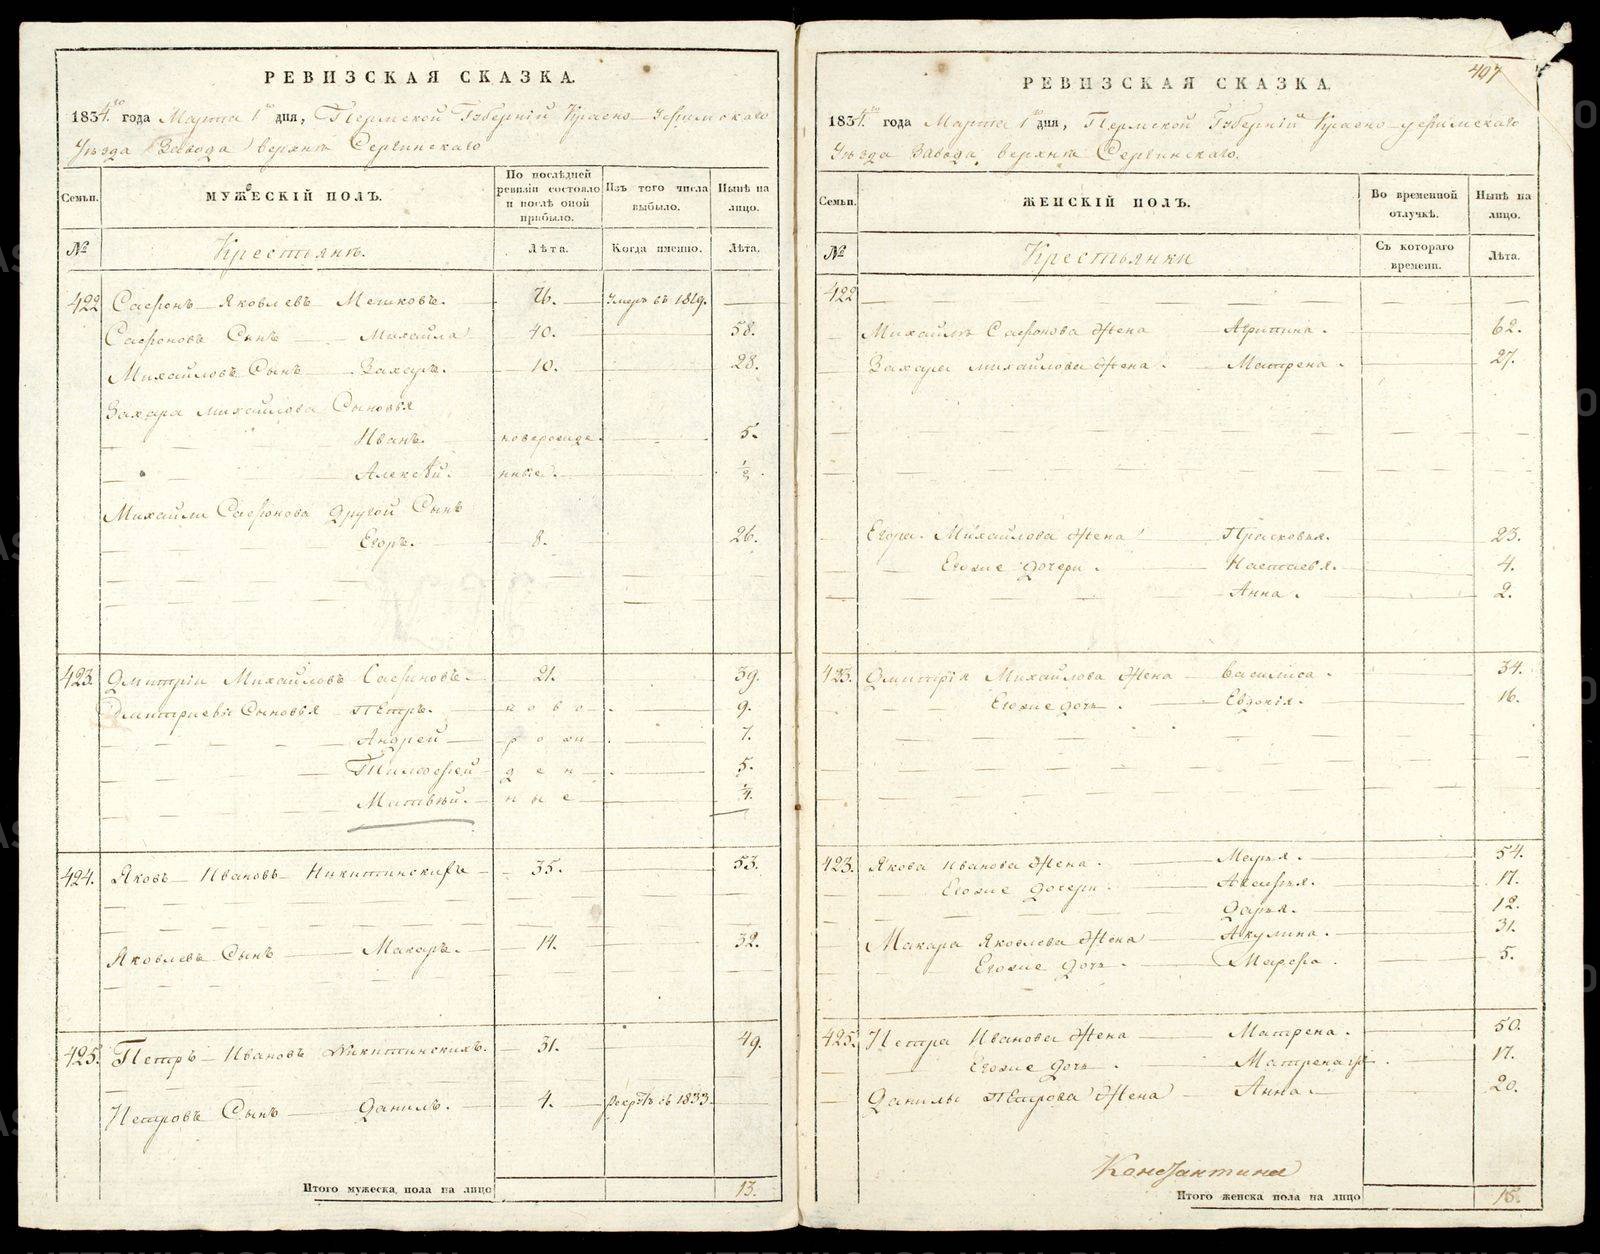 РЕВИЗСКАЯ СКАЗКА.
1834го года Марта 1го дня, Пермской Губернiй Красно-Уфимскаго
Уѣзда Завода верхнѣ Сергинскаго
Семьи.
МУЖЕСКІЙ ПОЛЪ.
По послѣдней ревизіи состояло и послѣ оной прибыло.
Изъ того числа выбыло.
Нынѣ на лицо.
№
Крестьянъ.
Лѣта.
Когда именно.
Лѣта.
422 Сафронъ Яковлевъ Мешковъ. 76. Умеръ въ 1819.
Сафроновъ Сынъ Михайла 40. 58.
Михайловъ Сынъ Захаръ. 10. 28.
Захара Михайлова Сыновья
Иванъ. новорожде 5.
Алексѣй. нные. 1/2
Михайлы Сафронова другой Сынъ
Егоръ. 8. 26.
423. Дмитрiй Михайловъ Сафроновъ. 21. 39.
Дмитриевы Сыновья Петръ. ново 9.
Андрей рож 7.
Тимофей ден 5.
Матвѣй. ные 1/4.
424. Яковъ Ивановъ Никитинскихъ 35. 53.
Яковлевъ Сынъ Макаръ. 14. 32.
425. Петръ Ивановъ Никитинскихъ. 31. 49.
Петровъ Сынъ Данилъ. 4. въ 1833.
Итого мужеска пола на лицо 13.
407
РЕВИЗСКАЯ СКАЗКА.
1834го года Марта 1го дня, Пермской Губернiй Красно-уфимскаго
Уѣзда Завода верхнѣ Сергинскаго.
Семьи.
ЖЕНСКІЙ ПОЛЪ.
Во временной отлучкѣ.
Нынѣ на лицо.
№
Крестьянки
Съ котораго времени.
Лѣта.
422
Михайлы Сафронова Жена Агрипина. 62.
Захара Михайлова Жена. Матрена. 27.
Егора Михайлова Жена Прасковья. 23.
Егожие дочери. Настасья. 4.
Анна. 2.
423. Дмитрiя Михайлова Жена Василиса. 34.
Егожие дочь. Евдокiя. 16.
423. Якова Иванова Жена. Марья. 54.
Егожие дочери. Аксинья. 17.
Дарья. 12.
Макара Яковлева Жена Акулина. 31.
Егожие дочь. Марфа. 5.
425. Петра Иванова Жена Матрена. 50.
Егожие дочь. Матрена 17.
Данилы Петрова Жена Анна. 20.
Константина
Итого женска пола на лицо 15.